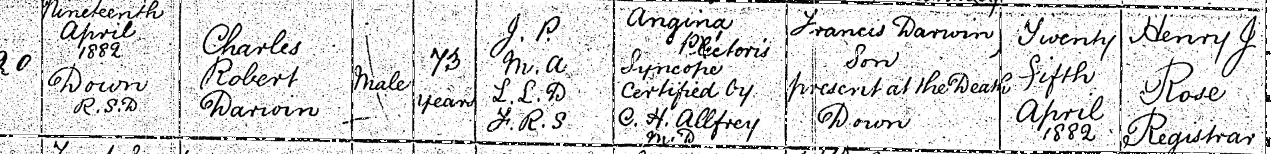 20
Nineteenth
April
1882
Down
R.S.D
Charles
Robert
Darwin
Male
73
years
J. P.
M. A
L. L. D
F. R. S
Angina
Pectoris
Syncope
Certified by
C. H. Allfrey
M.D
Francis Darwin
Son
present at the Death
Down
Twenty
Fifth
April
1882
Henry J
Rose
Registrar